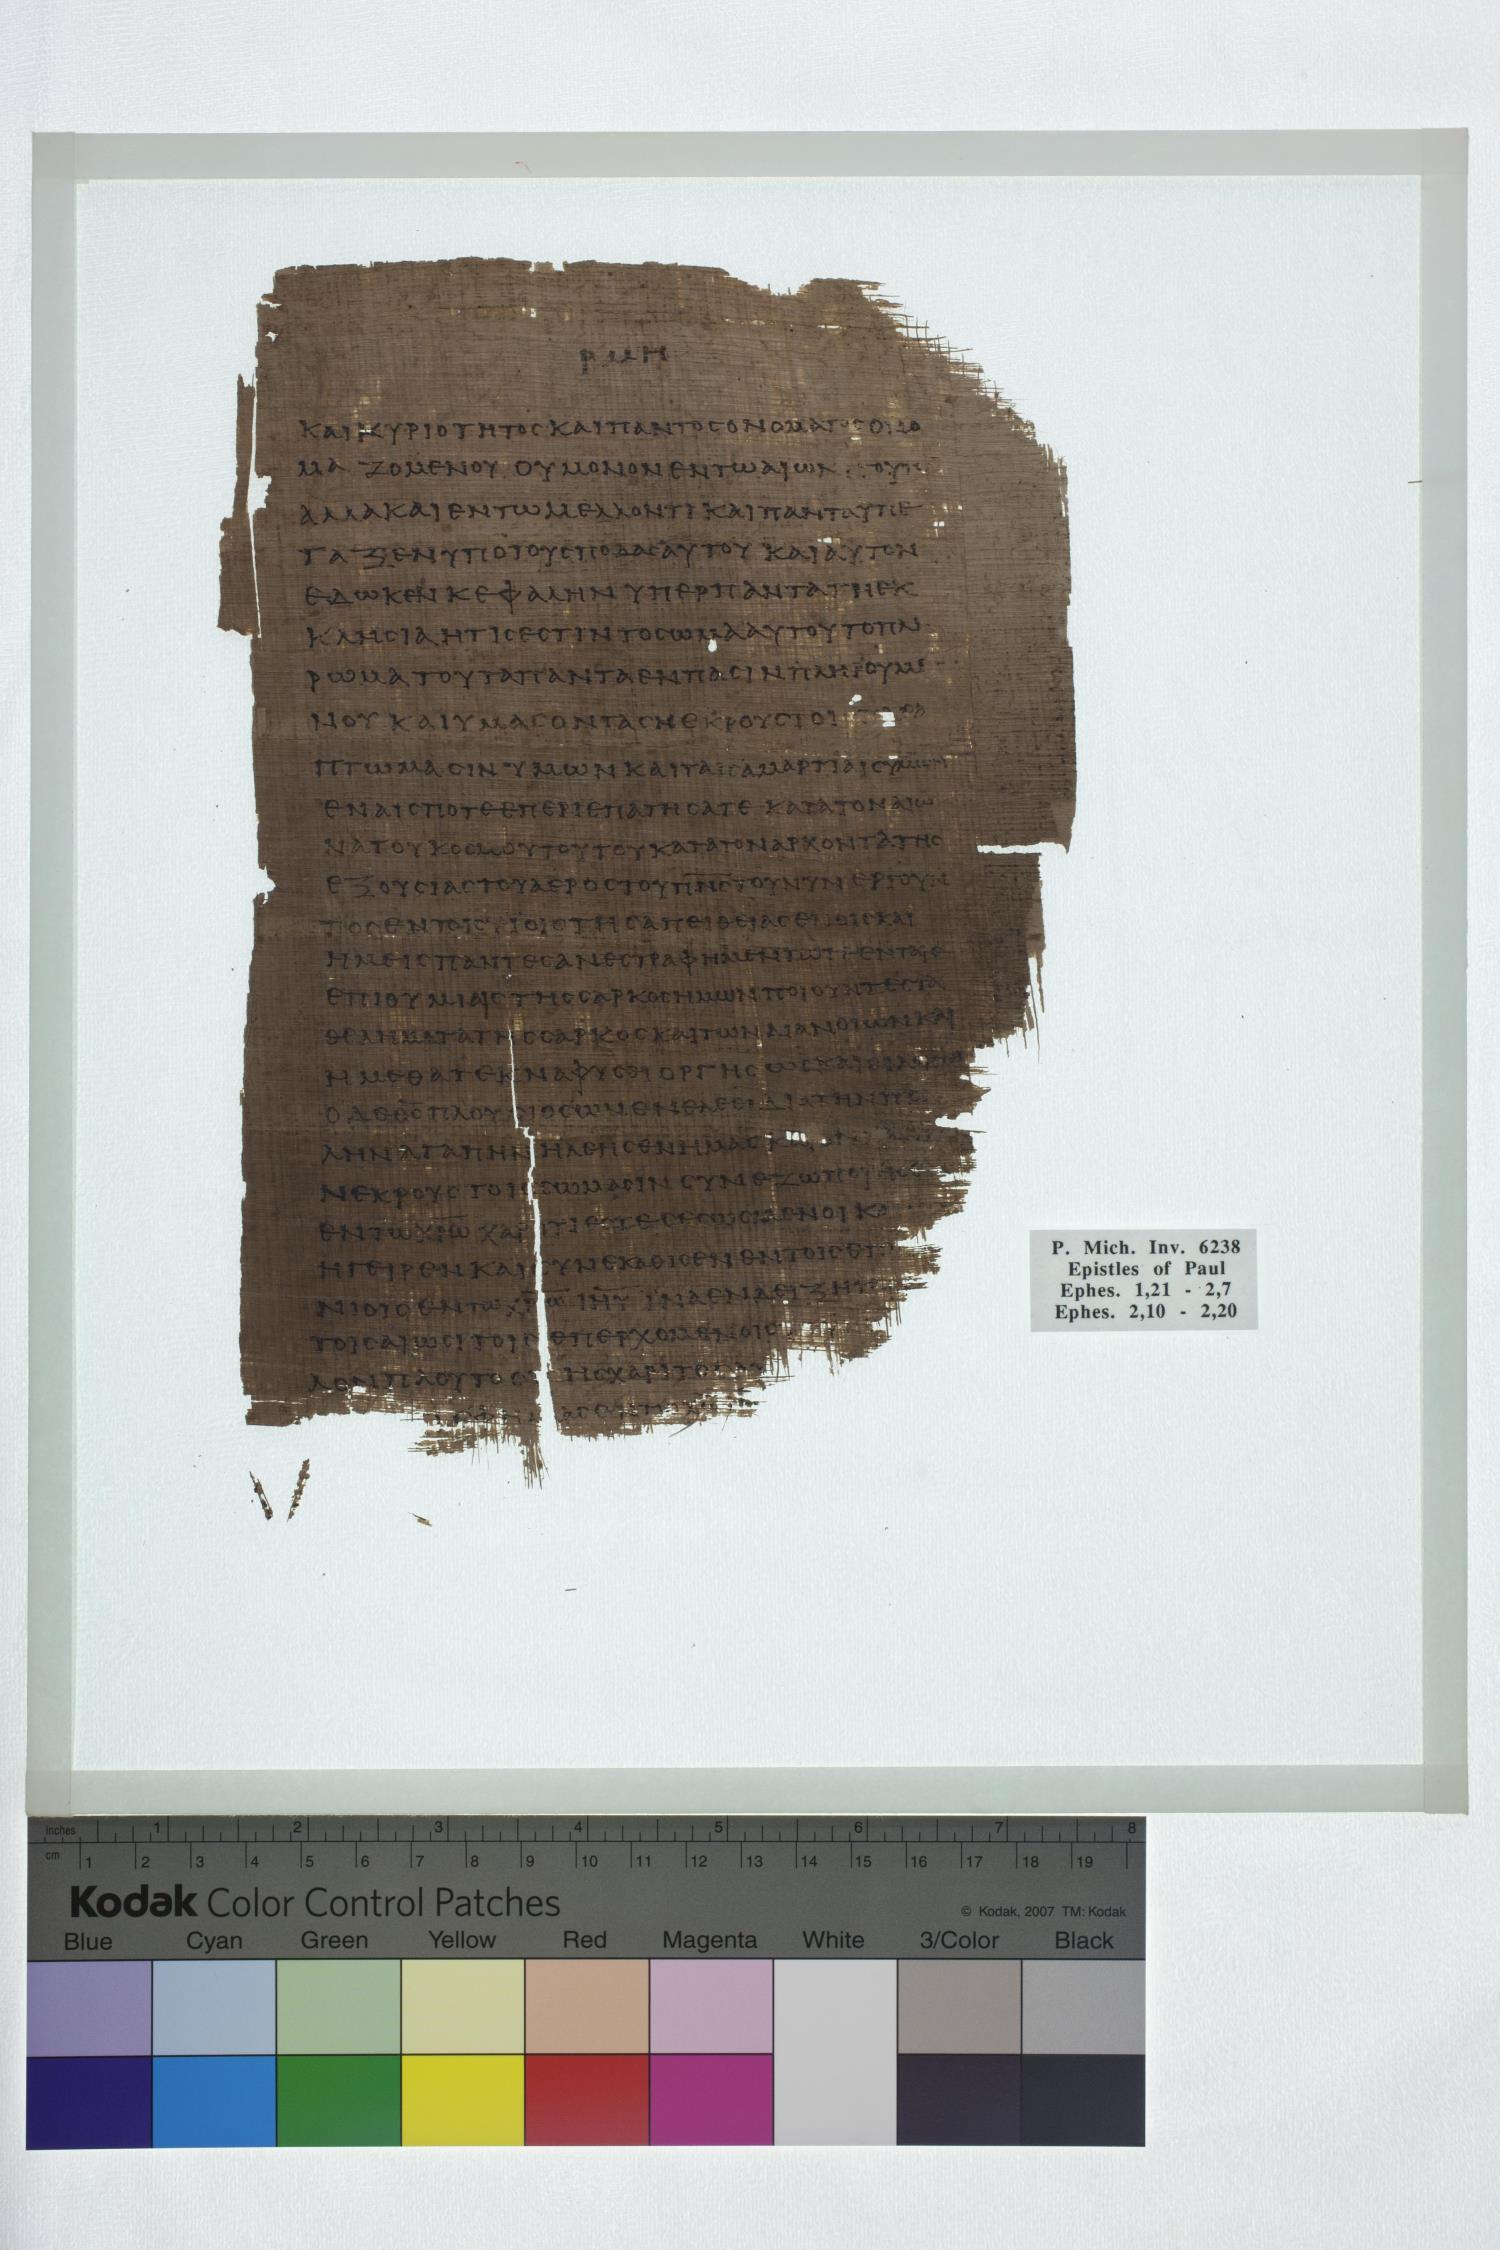 ρμη
ΚΑΙ ΚΥΡΙΟΤΗΤΟΣ ΚΑΙ ΠΑΝΤΟΣ ΟΝΟΜΑΤΟΣ
ΜΑΖΟΜΕΝΟΥ ΟΥ ΜΟΝΟΝ ΕΝ ΤΩ
ΑΛΛΑ ΚΑΙ ΕΝ ΤΩ ΜΕΛΛΟΝΤΙ ΚΑΙ ΠΑΝΤΑ ΥΠΕ
ΤΑΞΕΝ ΥΠΟ ΤΟΥΣ ΠΟΔΑΣ ΑΥΤΟΥ ΚΑΙ ΑΥΤΟΝ
ΕΔΩΚΕΝ ΚΕΦΑΛΗΝ ΥΠΕΡ ΠΑΝΤΑ ΤΗ ΕΚ
ΚΛΗΣΙΑ ΗΤΙΣ ΕΣΤΙΝ ΤΟ ΣΩΜΑ ΑΥΤΟΥ ΤΟ
ΡΩΜΑ ΤΟΥ ΤΑ ΠΑΝΤΑ ΕΝ ΠΑΣΙΝ ΠΛΗΡΟΥΜΕ
ΝΟΥ ΚΑΙ ΥΜΑΣ ΟΝΤΑΣ ΝΕΚΡΟΥΣ ΤΟΙΣ
ΠΤΩΜΑΣΙΝ ΥΜΩΝ ΚΑΙ ΤΑΙΣ ΑΜΑΡΤΙΑΙΣ ΥΜΩΝ
ΕΝ ΑΙΣ ΠΟΤΕ ΕΠΕΡΙΕΠΑΤΗΣΑΤΕ ΚΑΤΑ ΤΟΝ ΑΙΩ
ΝΑ ΤΟΥ ΚΟΣΜΟΥ ΤΟΥΤΟΥ ΚΑΤΑ ΤΟΝ ΑΡΧΟΝΤΑ ΤΗΣ
ΕΞΟΥΣΙΑΣ ΤΟΥ ΑΕΡΟΣ ΤΟΥ ΠΝΣ ΤΟΥ ΝΥΝ
ΤΟΣ ΕΝ ΤΟΙΣ ΥΙΟΙΟ ΤΗΣ ΑΠΕΙΘΕΙΑΣ ΕΝ ΟΙΣ ΚΑΙ
ΗΜΕΙΣ ΠΑΝΤΕΣ ΑΝΕΣΤΡΑΦΗΜΕΝ
ΕΠΙΘΥΜΙΑΙΣ ΤΗΣ ΣΑΡΚΟΣ ΗΜΩΝ ΠΟΙΟΥΝΤΕΣ ΤΑ
ΘΕΛΗΜΑΤΑ ΤΗΣ ΣΑΡΚΟΣ ΚΑΙ ΤΩΝ ΔΙΑΝΟΙΩΝ ΚΑΙ
ΗΜΕΘΑ ΤΕΚΝΑ ΦΥΣΕΙ ΟΡΓΗΣ ΩΣ ΚΑΙ
Ο ΔΕ ΘΣ ΠΛΟΥΣΙΟΣ ΩΝ ΕΝ ΕΛΕΕΙ ΔΙΑ ΤΗΝ
ΛΗΝ ΑΓΑΠΗΝ ΗΛΕΗΣΕΝ ΗΜΑΣ
ΝΕΚΡΟΥΣ ΤΟΙΣ ΣΩΜΑΣΙΝ
ΕΝ ΤΩ ΧΡΩ ΧΑΡΙΤΙ ΕΣΤΕ ΣΕΣΩΣΜΕΝΟΙ
ΗΓΕΙΡΕΝ ΚΑΙ ΣΥΝΕΚΑΘΙΣΕΝ ΕΝ ΤΟΙΣ
ΝΙΟΙΟ ΕΝ ΤΩ ΧΡΩ ΙΗΥ ΙΝΑ
ΤΟΙΣ ΑΙΩΣΙ ΤΟΙΣ ΕΠΕΡΧΟΜΕΝΟΙΣ
ΠΛΟΥΤΟΣ
P. Mich. Inv. 6238
Epistles of Paul
Ephes. 1,21 - 2,7
Ephes. 2,10 - 2,20
inches 1 2 3 4 5 6 7 8
cm 1 2 3 4 5 6 7 8 9 10 11 12 13 14 15 16 17 18 19
Kodak Color Control Patches
© Kodak, 2007 TM: Kodak
Blue Cyan Green Yellow Red Magenta White 3/Color Black